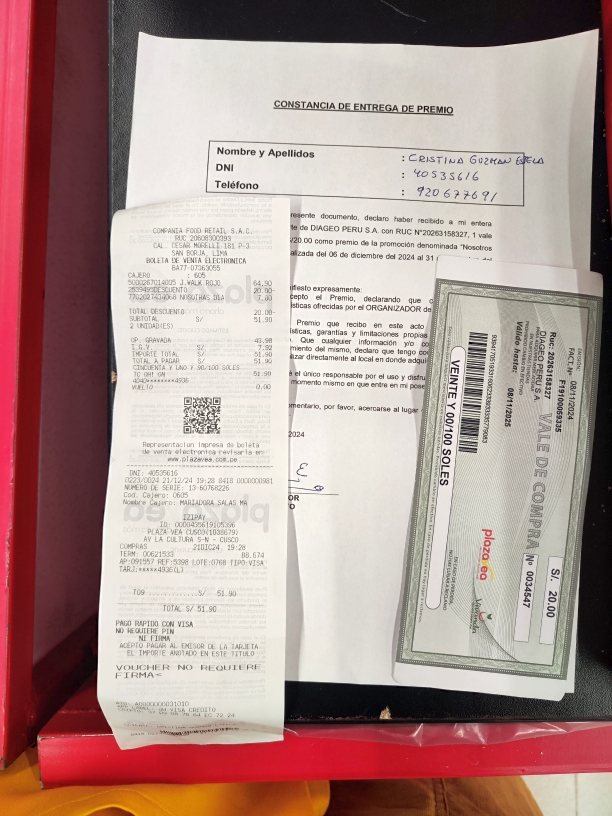 CONSTANCIA DE ENTREGA DE PREMIO
Nombre y Apellidos : CRISTINA GUZMAN
DNI : 40535616
Teléfono : 920677691
resente documento, declaro haber recibido a mi entera
te de DIAGEO PERU S.A. con RUC N°20263158327, 1 vale
/20.00 como premio de la promoción denominada "Nosotros
alizada del 06 de diciembre del 2024 al 31
ifiesto expresamente:
cepto el Premio, declarando que
ísticas ofrecidas por el ORGANIZADOR de
Premio que recibo en este acto
ísticas, garantías y limitaciones propias
Que cualquier información y/o
miento del mismo, declaro que tengo
alizar directamente al local en donde
e el único responsable por el uso y
momento mismo en que entre en mi
mentario, por favor, acercarse al lugar
2024
OR
O
COMPANIA FOOD RETAIL S.A.C.
RUC 20608300393
CAL. CESAR MORELLI 181 P-3
SAN BORJA, LIMA
BOLETA DE VENTA ELECTRONICA
BA77-07363055
CAJERO : 605
5000267014005 J.WALK.ROJO 64.90
DESCUENTO 20.00-
7702027434068 NOSOTRAS DIA 7.00
TOTAL DESCUENTO 20.00-
SUBTOTAL S/ 51.90
2 UNIDAD(ES)
OP. GRAVADA 43.98
I.G.V. S/ 7.92
IMPORTE TOTAL S/ 51.90
TOTAL A PAGAR S/ 51.90
CINCUENTA Y UNO Y 90/100 SOLES
TC OH! ON 51.90
4040********4936
VUELTO 0.00
Representacion impresa de boleta
de venta electronica revisarla en:
www.plazavea.com.pe
DNI: 40535616
0223/0024 21/12/24 19:28 8418 0000000981
NUMERO DE SERIE: 13-60768226
Cod. Cajero: 0605
Nombre Cajero: MARIADORA SALAS MA
IZIPAY
ID: 0000435619105396
PLAZA VEA CUSCO(1038679)
AV LA CULTURA S-N - CUSCO
COMPRAS 21DIC24 19:28
TERM: 00621533 B8.674
AP:091557 REF:5398 LOTE:0768 TIPO:VISA
TARJ:*****4936(L)
TO9 S/ 51.90
TOTAL S/ 51.90
PAGO RAPIDO CON VISA
NO REQUIERE PIN
NI FIRMA
ACEPTO PAGAR AL EMISOR DE LA TARJETA
EL IMPORTE ANOTADO EN ESTE TITULO
VOUCHER NO REQUIERE
FIRMA
AID: A0000000031010
VISA CREDITO
08/11/2024
FACT. Nº F19100059335
DIAGEO PERU S.A.
Ruc: 20263158327
Válido hasta: 08/11/2025
VALE DE COMPRA
Nº 0034547
S/. 20.00
VEINTE Y 00/100 SOLES
plaza vea
Vivanda